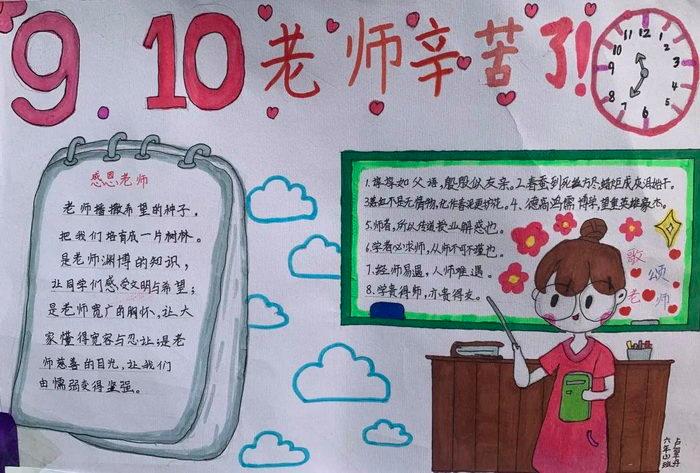 9.10老师辛苦了!
12
1
2
3
4
5
6
7
8
9
10
11
感恩老师
老师播撒希望的种子,
把我们培育成一片树林。
是老师渊博的知识,
让同学们感受文明与希望;
是老师宽广的胸怀,让大
家懂得宽容与忍让是老
师慈善的目光,让我们
由懦弱变得坚强。
1.谆谆如父语,殷殷似友亲。2.春蚕到死丝方尽,蜡炬成灰泪始干。
3落红不是无情物,化作春泥更护花。4、德高鸿儒博学,望重英雄豪杰。
5.师者,所以传道授业解惑也。
6.学者必求师,从师不可不谨也。
7.经师易遇,人师难遇。
8.学贵得师,亦贵得友。
歌
颂
老师
六年